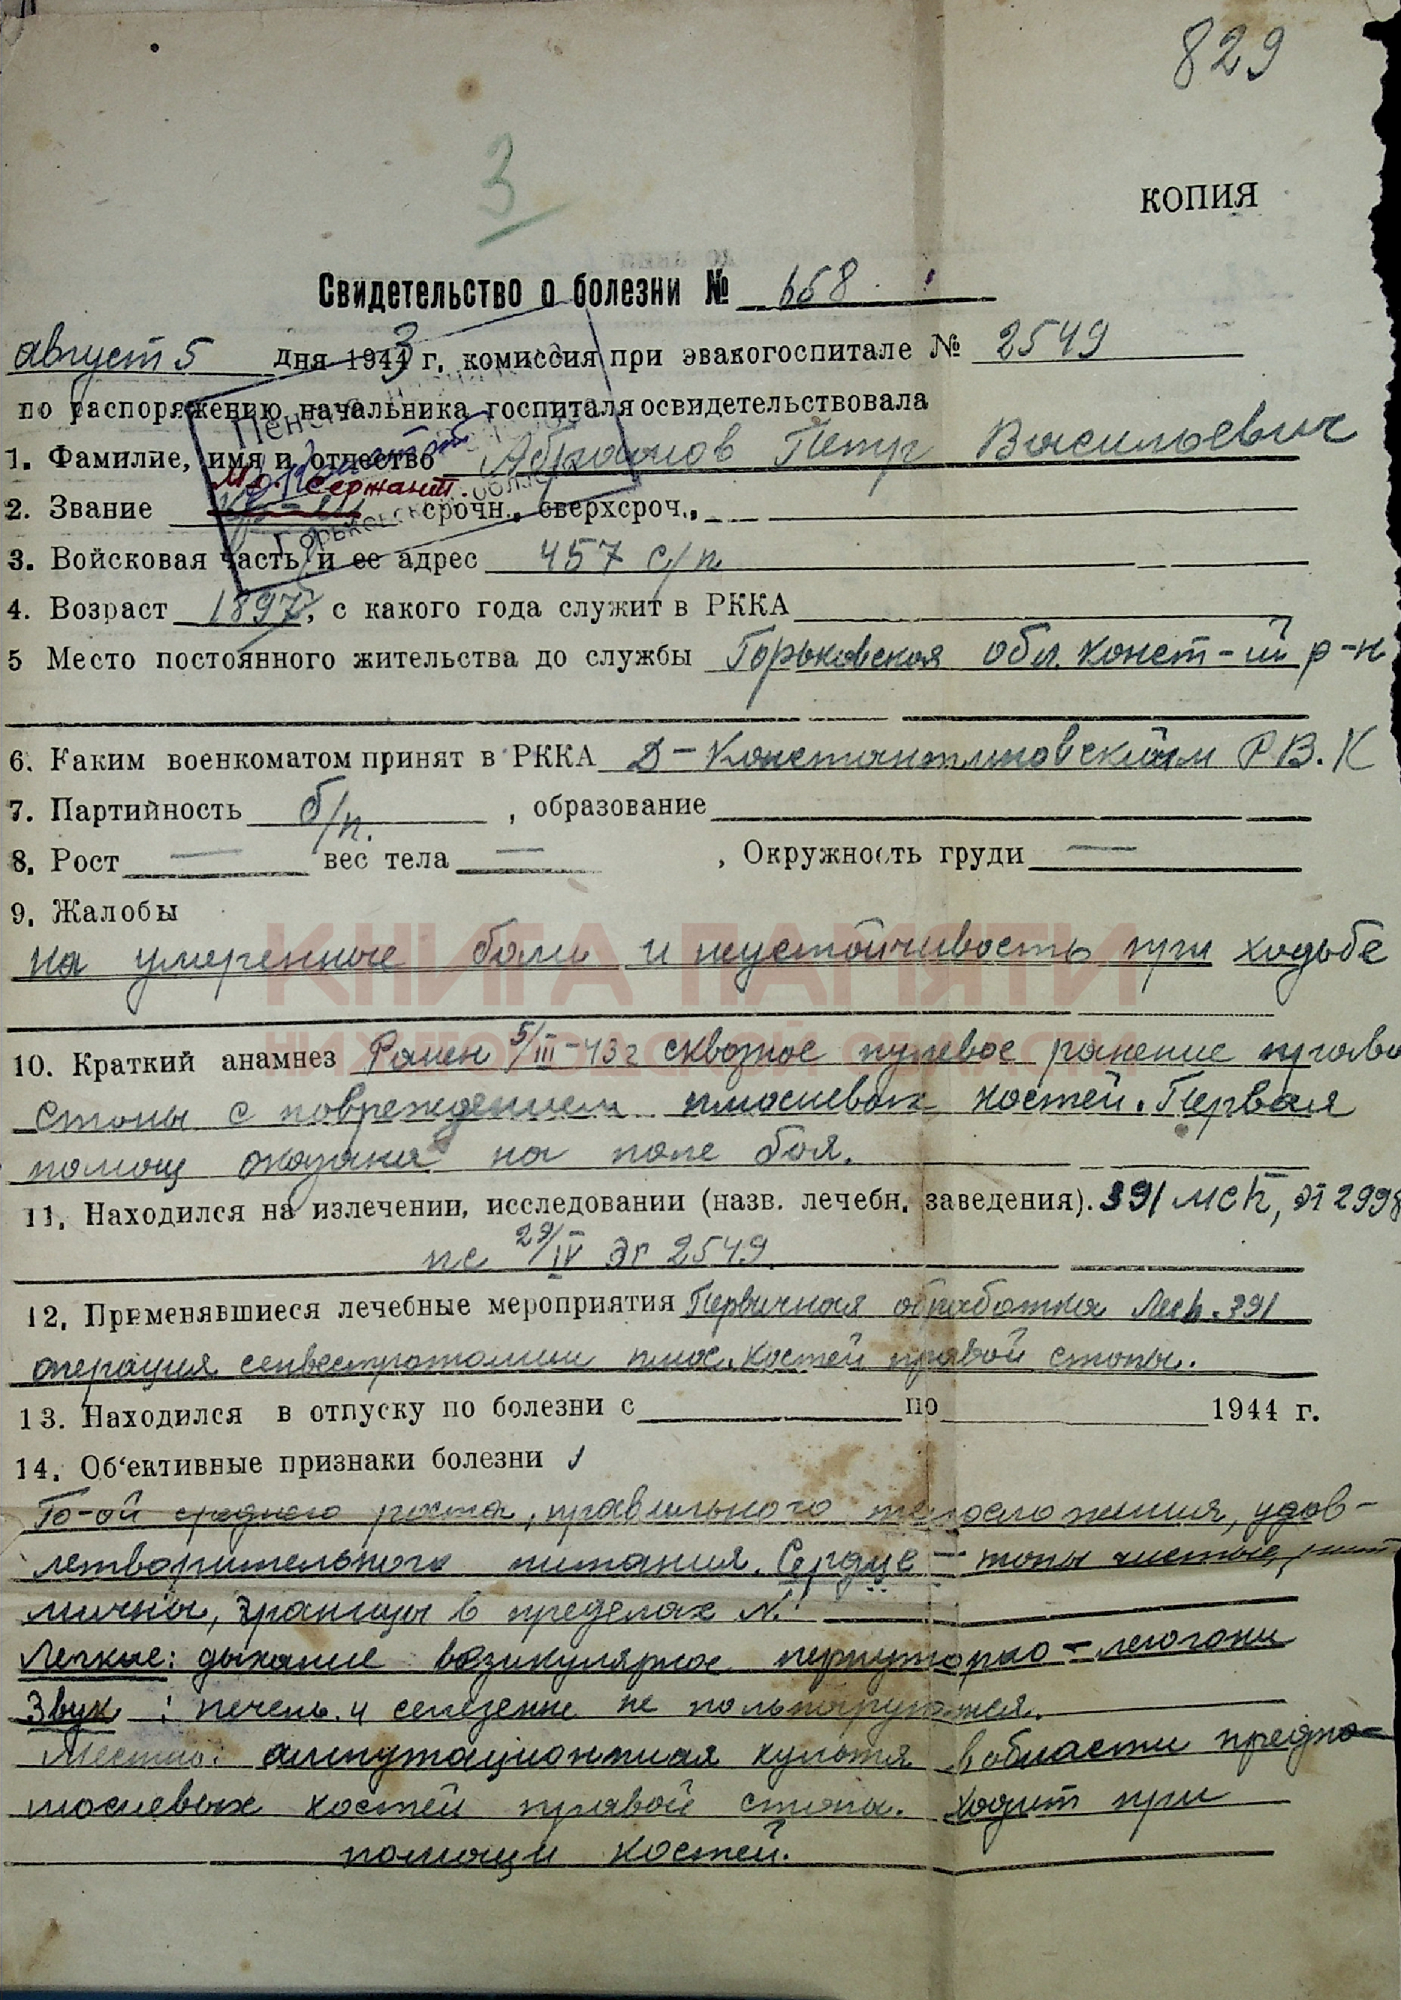 829
3
КОПИЯ
Свидетельство о болезни № 658
август 5 дня 1943 г. комиссия при эвакогоспитале № 2549
по распоряжению начальника госпиталя освидетельствовала
1. Фамилие, имя и отчество Абрамов Петр Васильевич
2. Звание Мл. сержант. срочн., сверхсроч.,
3. Войсковая часть и ее адрес 457 с/п
4. Возраст 1897, с какого года служит в РККА
5 Место постоянного жительства до службы Горьковская обл. Конст-ий р-н
6. Каким военкоматом принят в РККА Д-Константиновским Р.В.К
7. Партийность б/п. , образование
8. Рост — вес тела — , Окружность груди —
9. Жалобы
на умеренные боли и неустойчивость при ходьбе
КНИГА ПАМЯТИ
НИЖЕГОРОДСКОЙ ОБЛАСТИ
10. Краткий анамнез Ранен 5/III-43г сквозное пулевое ранение право
стопы с повреждением плюсневых костей. Первая
помощ оказана на поле боя.
11. Находился на излечении, исследовании (назв. лечебн. заведения). 391 мсп, эг 2998
пс 29/IV эг 2549
12. Применявшиеся лечебные мероприятия Первичная обработка 391
операция секвестротомии плюс. костей правой стопы.
13. Находился в отпуску по болезни с по 1944 г.
14. Об'ективные признаки болезни
Б-ой среднего роста, правильного телосложения, удов-
летворительного питания. Сердце - тоны чистые, рит
мичны, границы в пределах N.
Легкие: дыхание везикулярное перкуторно - легочни
Звук : печень и селезенне не пальпаруются.
Местно: ампутационная культя в области предпо-
плюсневых костей правой стопы. Ходит при
помощи костей.